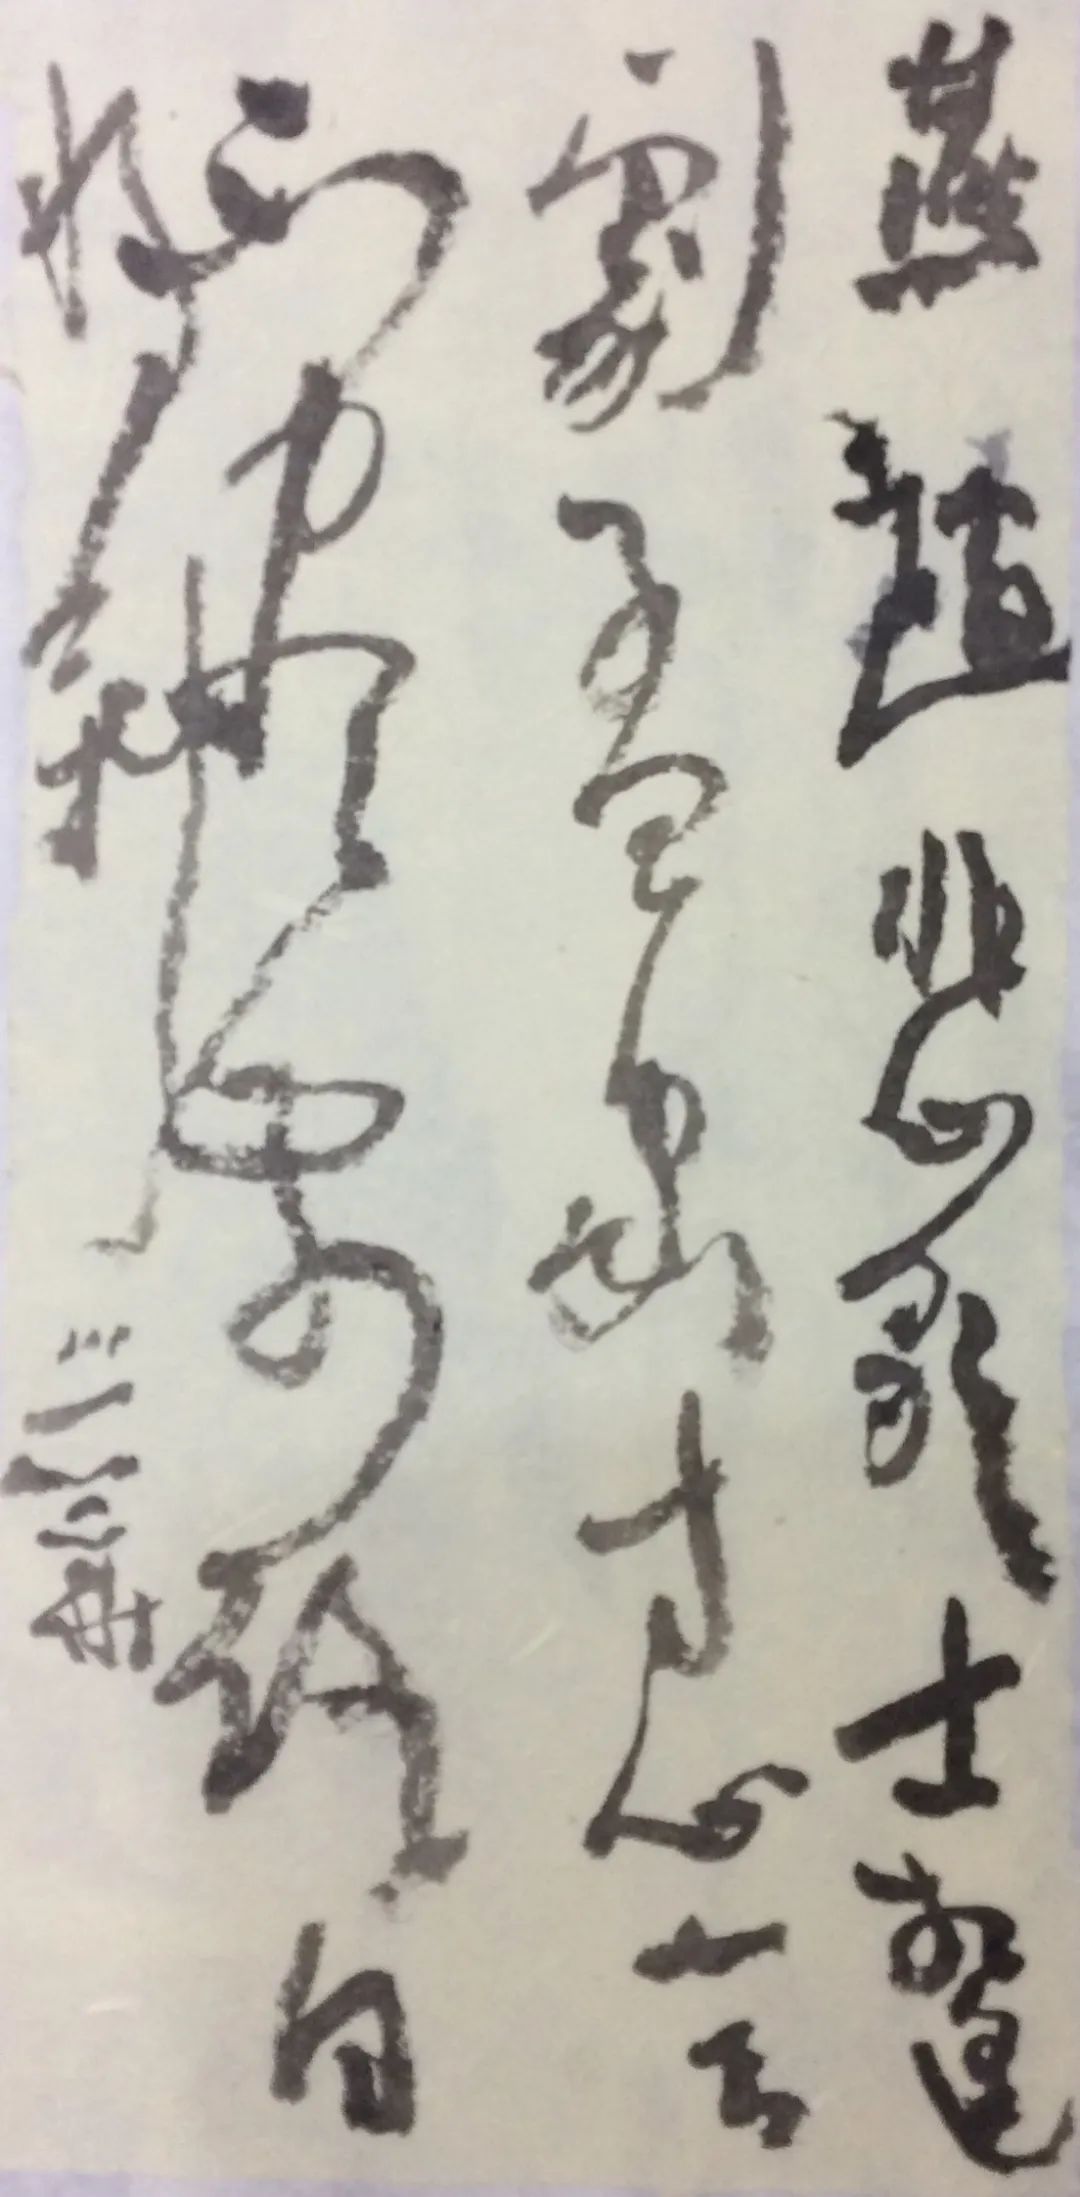 燕趙悲歌士相逢
劇孟家寸心言
不盡前路日
將斜